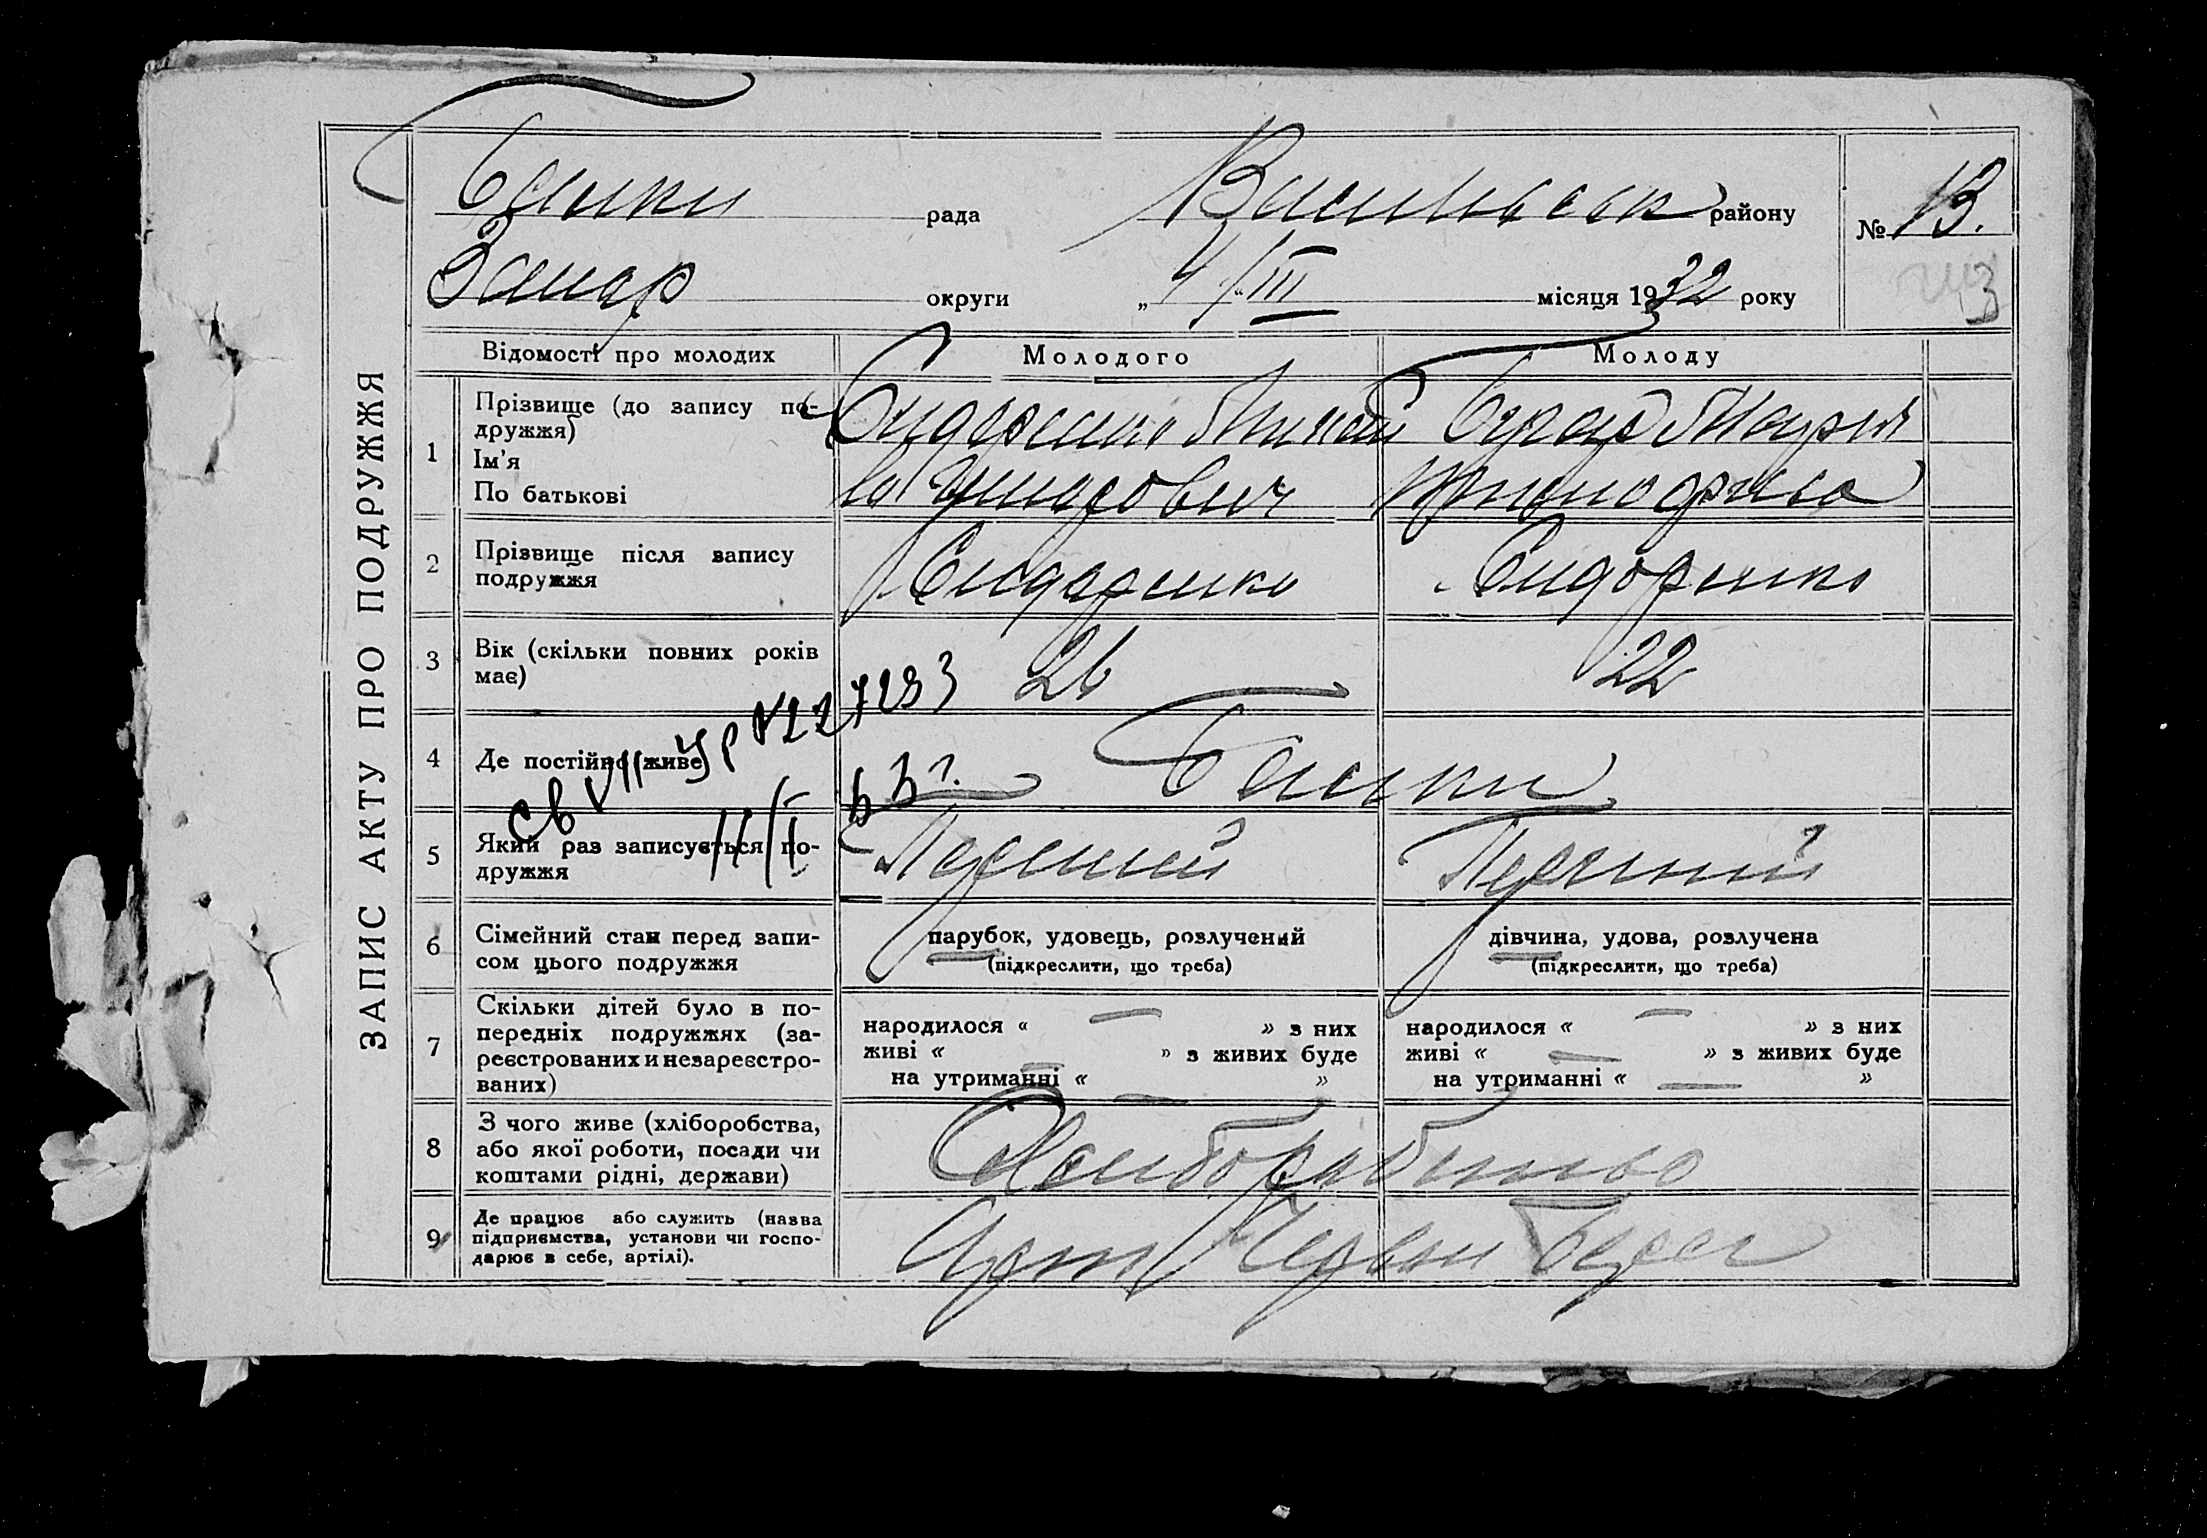 ЗАПИС АКТУ ПРО ПОДРУЖЖЯ
Балки рада Васильевск району № 13.
Запор округи „4/“ III місяця 1932 року
Відомості про молодих Молодого Молоду
1 Прізвище (до запису по-
дружжя)
Ім'я
По батькові
Сидоренко Михай
ло
Бугар Мария
2 Прізвище після запису
подружжя
Сидоренко Сидоренко
3 Вік (скільки повних років
має)
26 22
4 Де постійно живе
Балки
св УР № 227283
11/I 63 г.
5 Який раз записується по-
дружжя
Первый Первый
6 Сімейний стан перед запи-
сом цього подружжя
парубок, удовець, розлучений
(підкреслити, що треба)
дівчина, удова, розлучена
(підкреслити, що треба)
7 Скільки дітей було в по-
передніх подружжях (за-
реєстрованих и незареєстро-
ваних)
народилося « — » з них
живі « — » з живих буде
на утриманні « — »
народилося « — » з них
живі « — » з живих буде
на утриманні « — »
8 З чого живе (хліборобства,
або якої роботи, посади чи
коштами рідні, держави)
9 Де працює або служить (назва
підприємства, установи чи госпо-
дарює в себе, артілі).
Арт